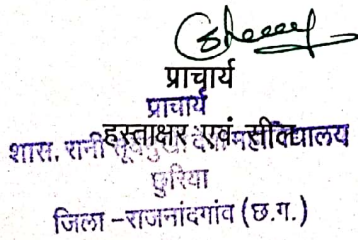 प्राचार्य
प्राचार्य
हस्ताक्षर एवं सील
शास. रानी महाविद्यालय
छुरिया
जिला -राजनांदगांव (छ.ग.)